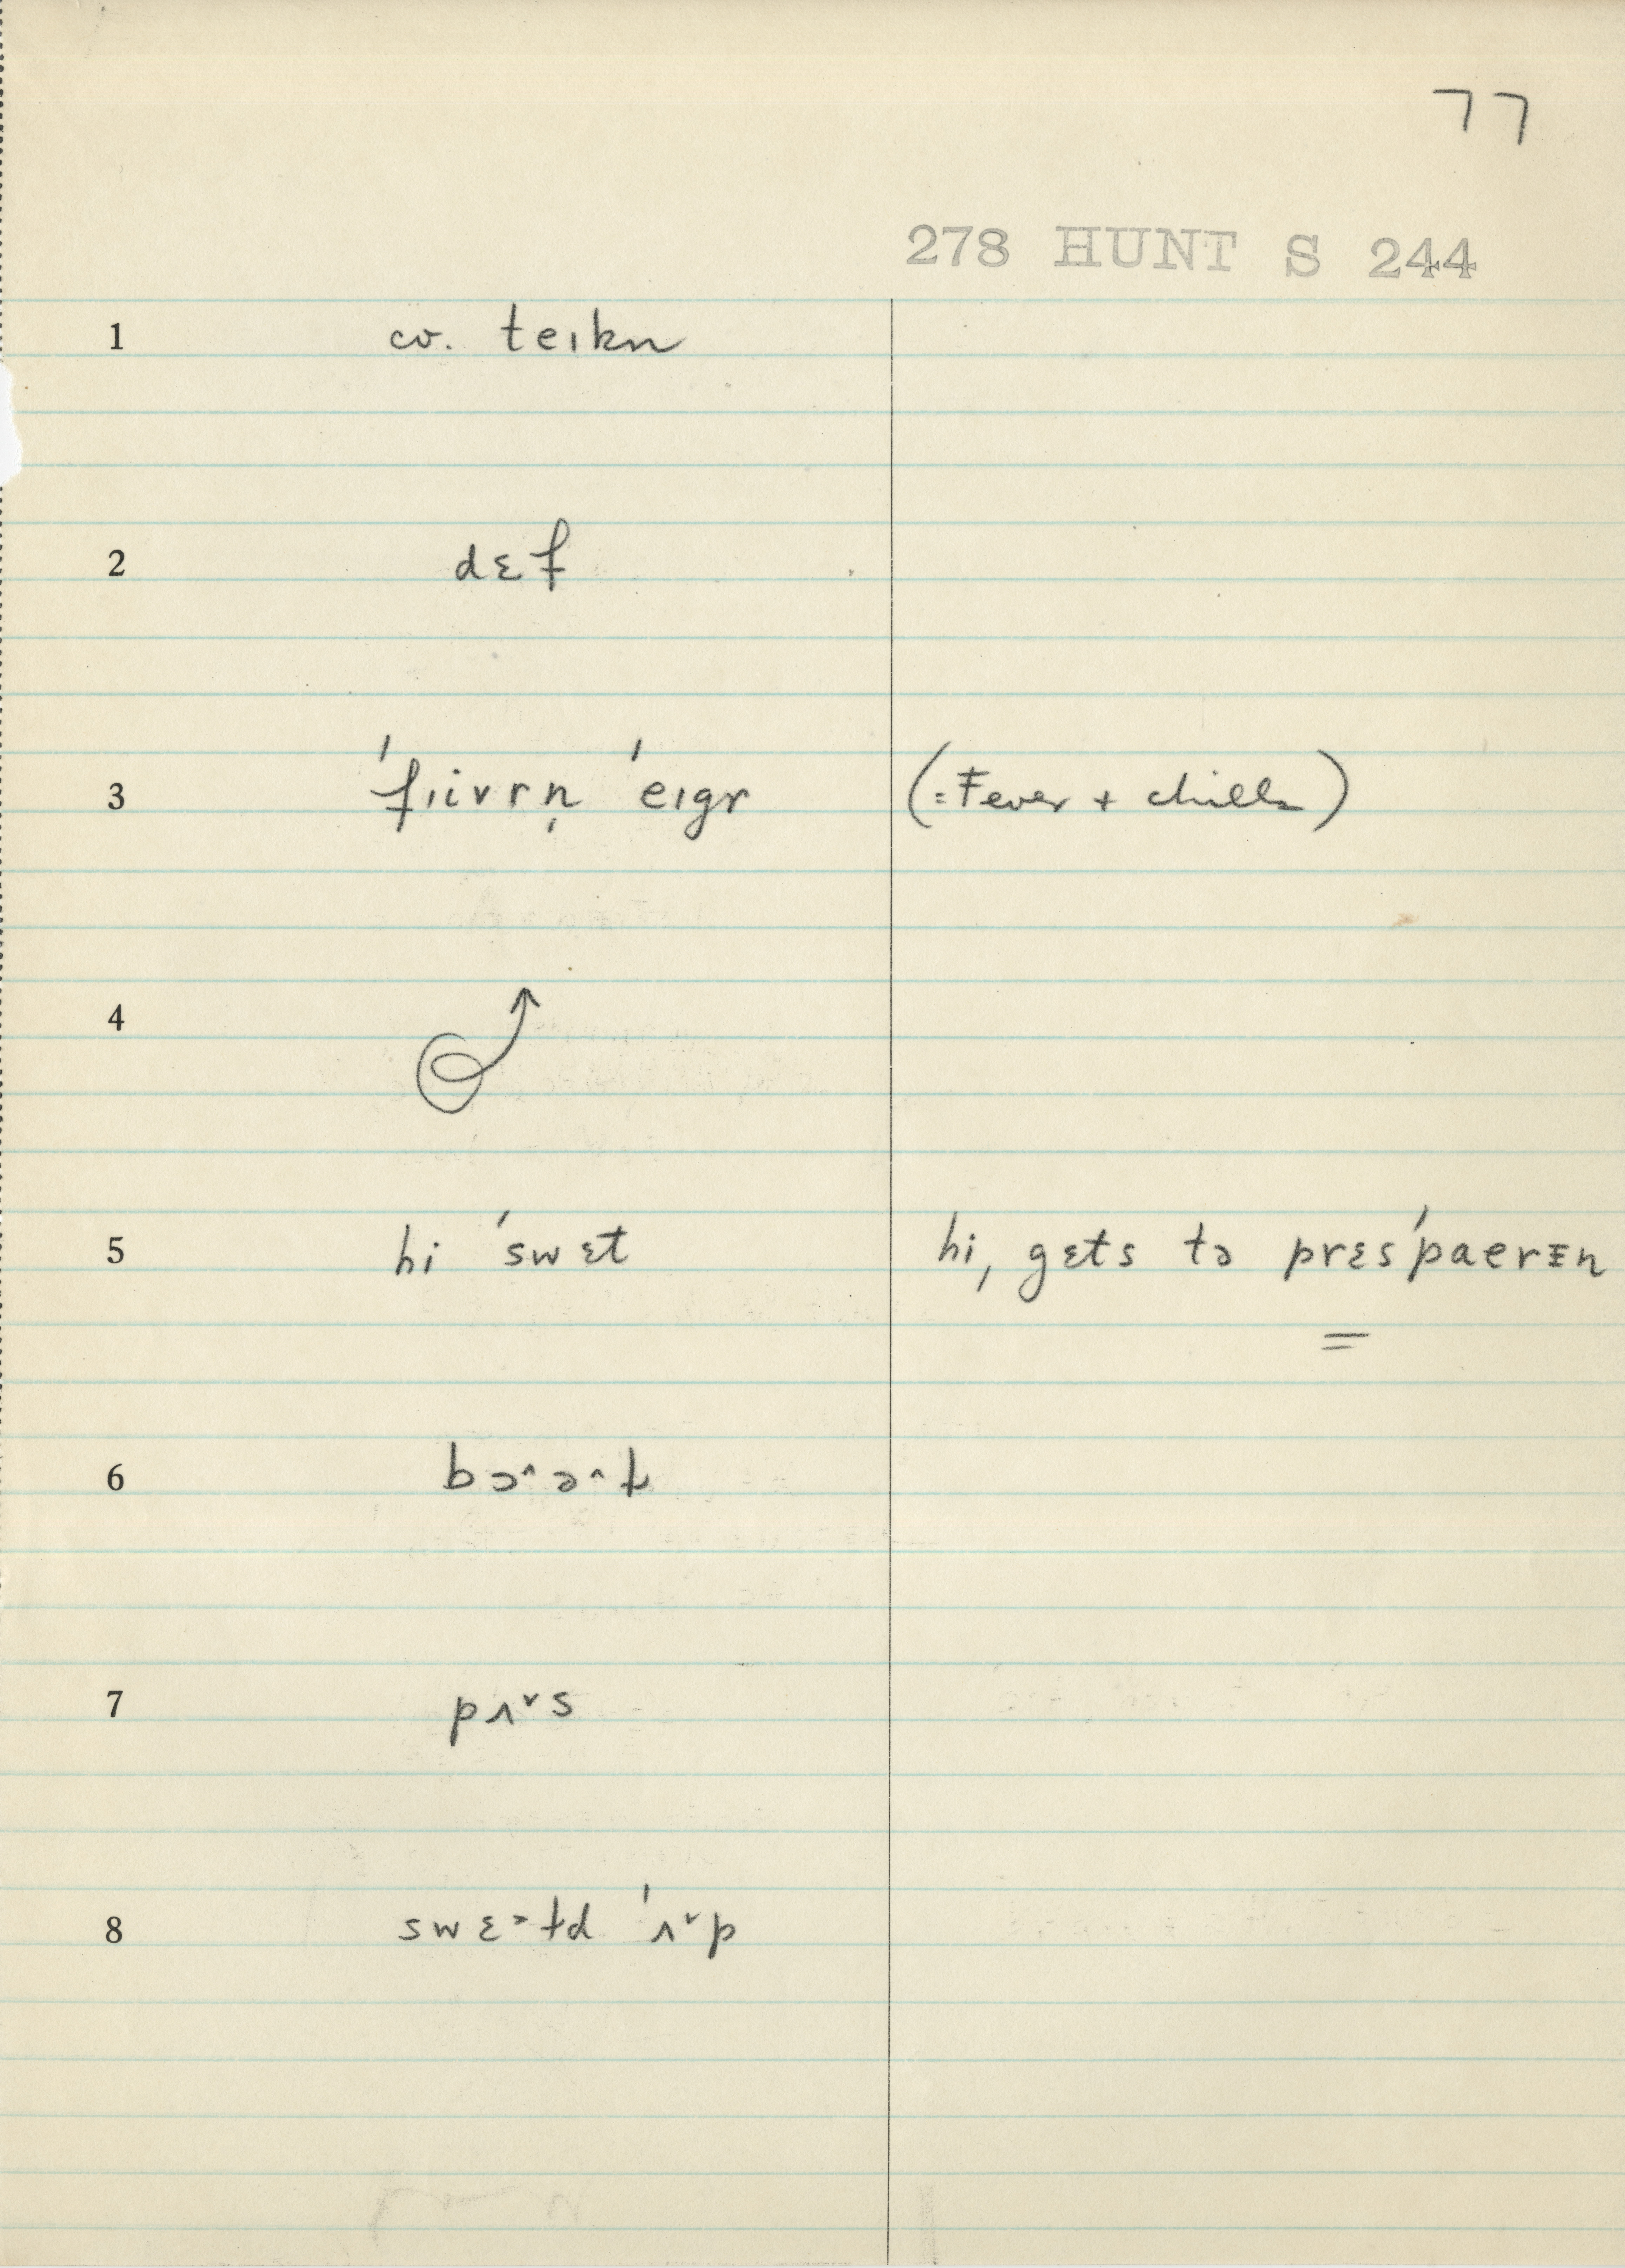 77
278 HUNT S 244
1 cv. teɪkn
2 dɛf
3 ˈfɪivrn̩ ˈeɪgr (=Fever + chills)
4
5 hi ˈswɛt hi, gɛts tə prɛsˈpaerɪn
=
6 bɔ˄ə˄t
7 pʌ˅s
8 swɛ˃td ˈʌ˅p